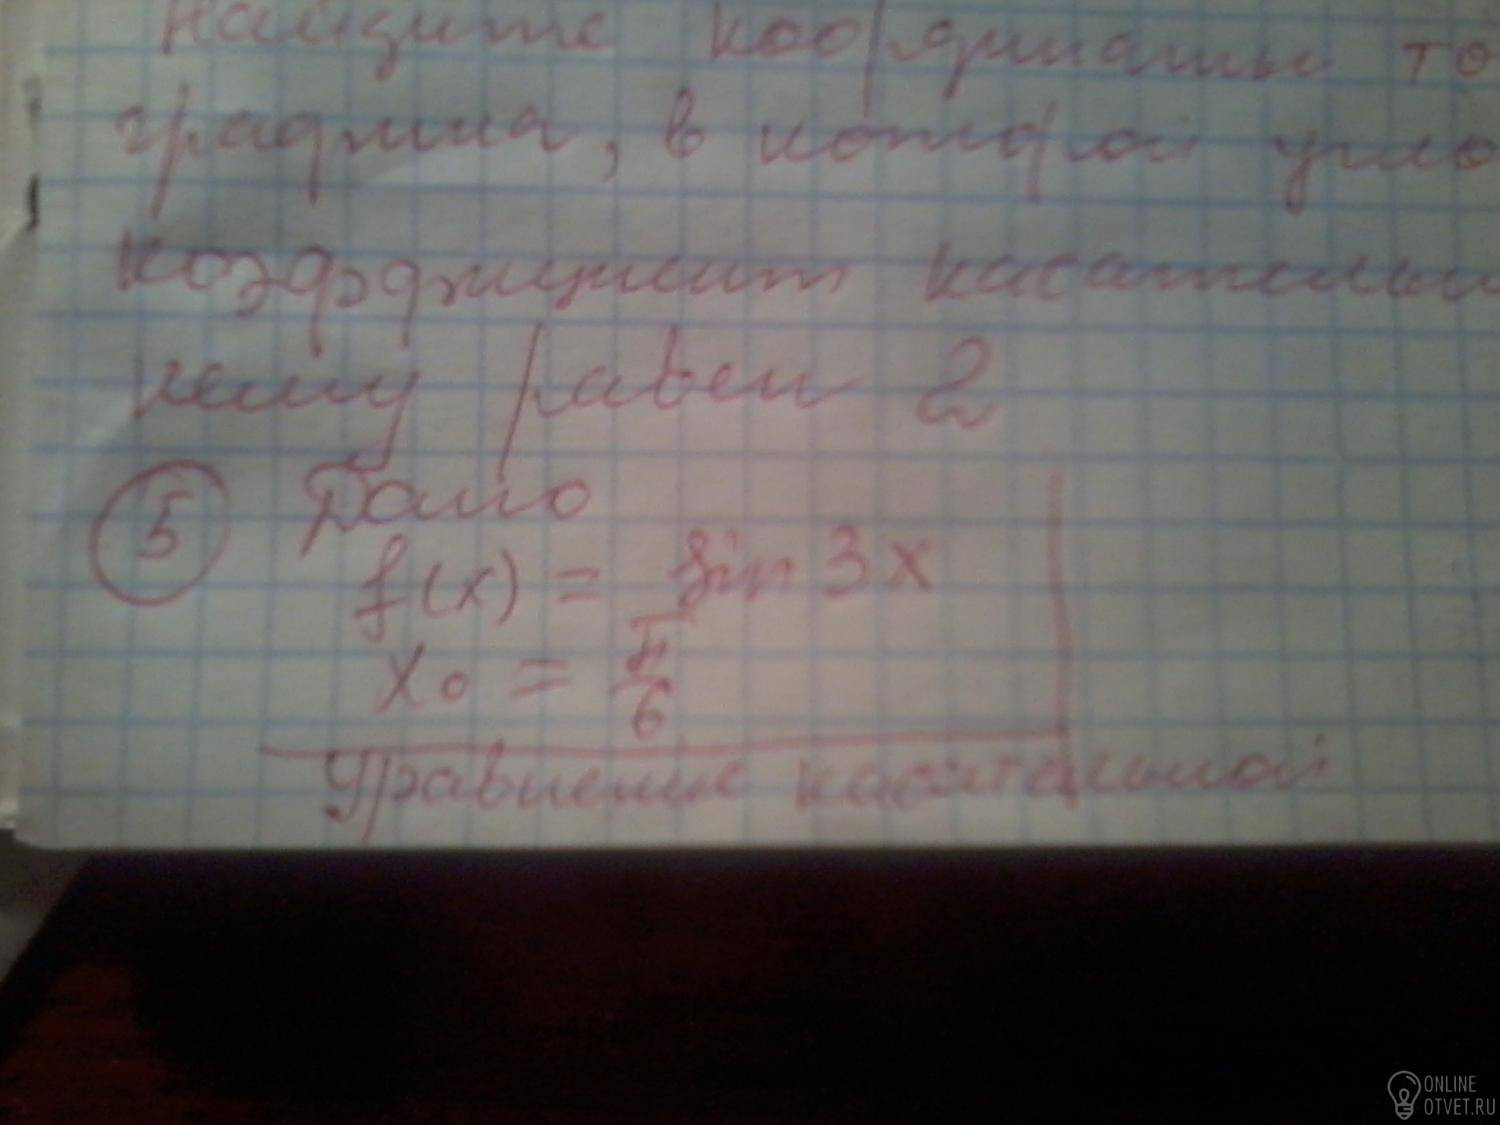 Найдите координаты то
графика, в которой угло
коэффициент касательн
нему равен 2
5 Дано
f(x) = sin 3x
x0 = π/6
Уравнение касательной
ONLINE
OTVET.RU